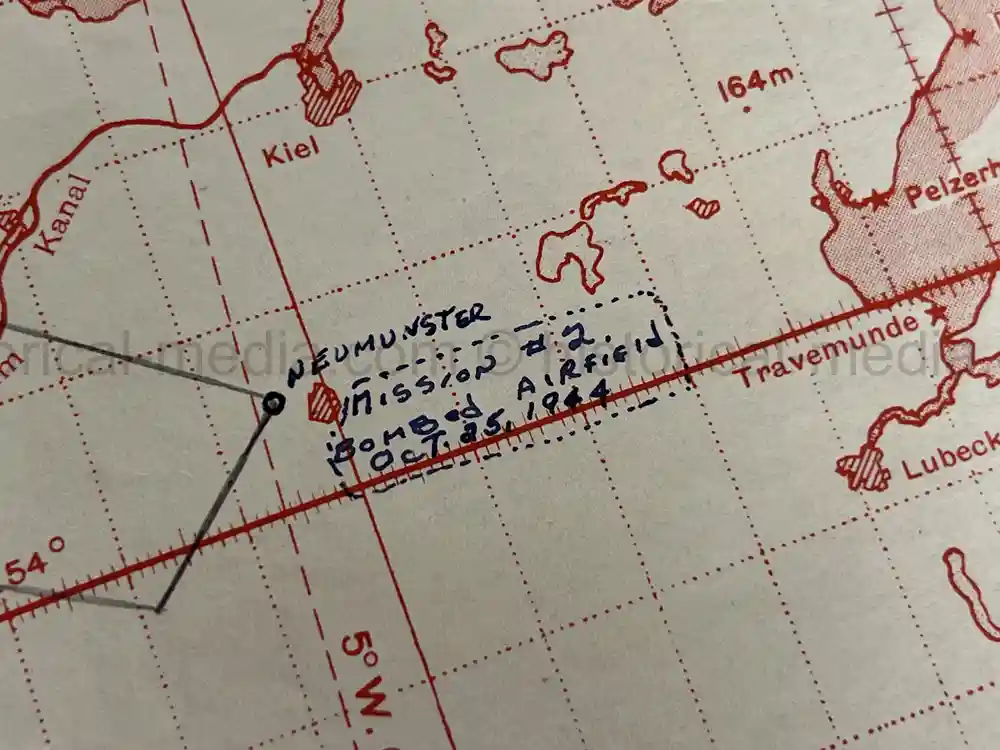 164m
Kiel
Kanal
Pelzerh
NEUMUNSTER
MISSION #2.
BOMBED AIRFIEld
OCT. 25, 1944
Travemunde
Lubeck
54°
5° W.
orical-media.com © historical-media